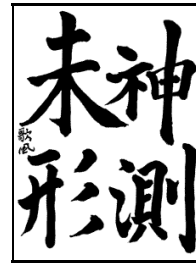 神測
未形
歌風